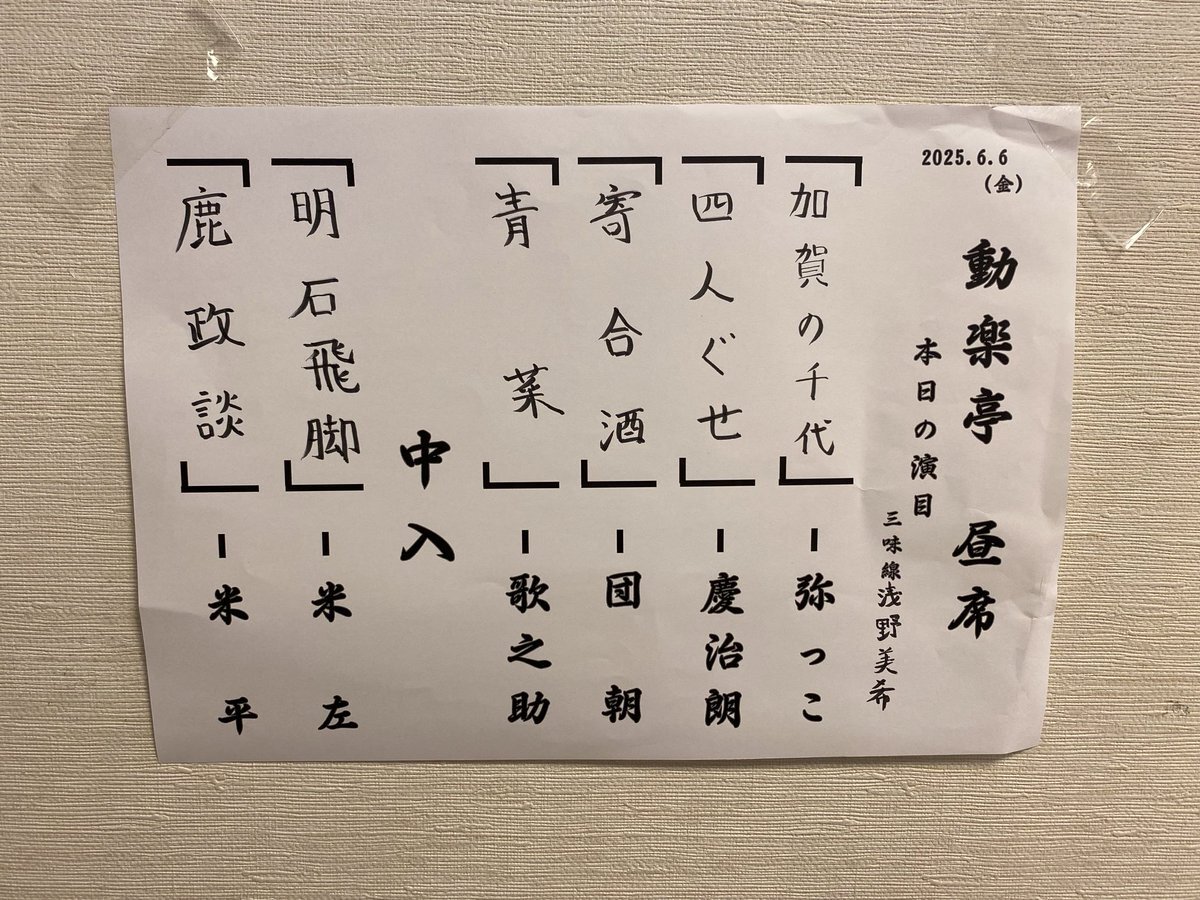 2025.6.6
(金)
動楽亭 昼席
本日の演目
三味線 浅野美希
「加賀の千代」 ー 弥っこ
「四人ぐせ」 ー 慶治朗
「寄合酒」 ー 団朝
「青菜」 ー 歌之助
中入
「明石飛脚」 ー 米左
「鹿政談」 ー 米平